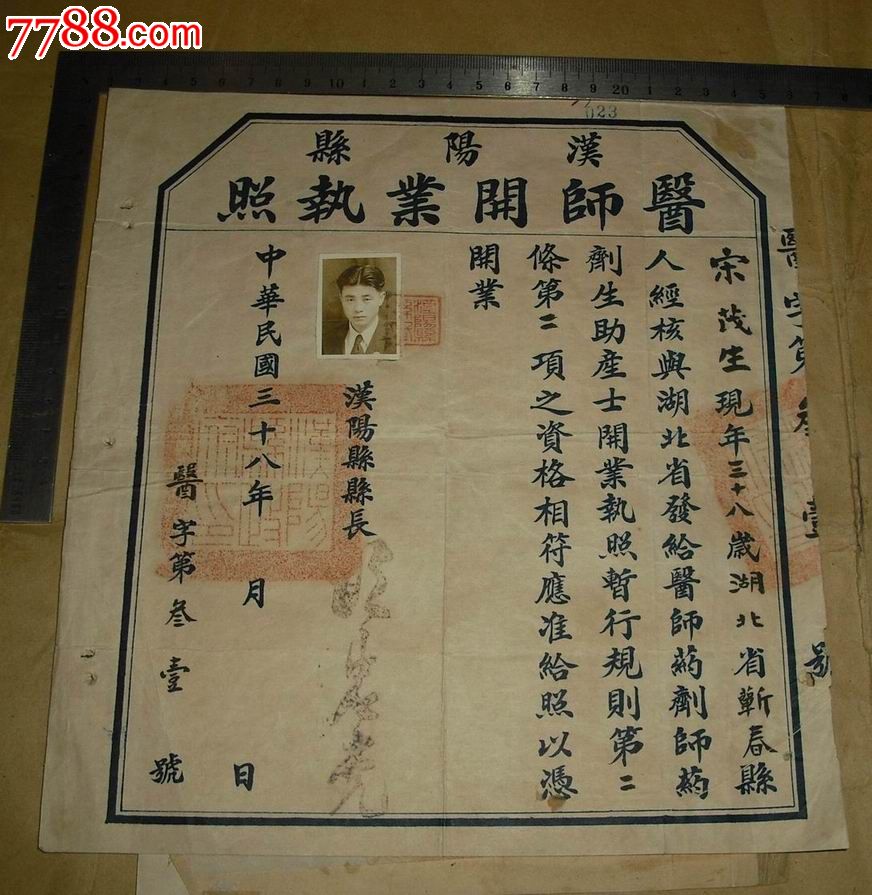 7788.com
023
漢陽縣
醫師開業執照
醫字第叁壹號
宋茂生現年三十八歲湖北省蘄春縣
人經核與湖北省發給醫師葯劑師葯
劑生助產士開業執照暫行規則第二
條第二項之資格相符應准給照以憑
開業
漢陽縣縣長
中華民國三十八年 月 日
醫字第叁壹號